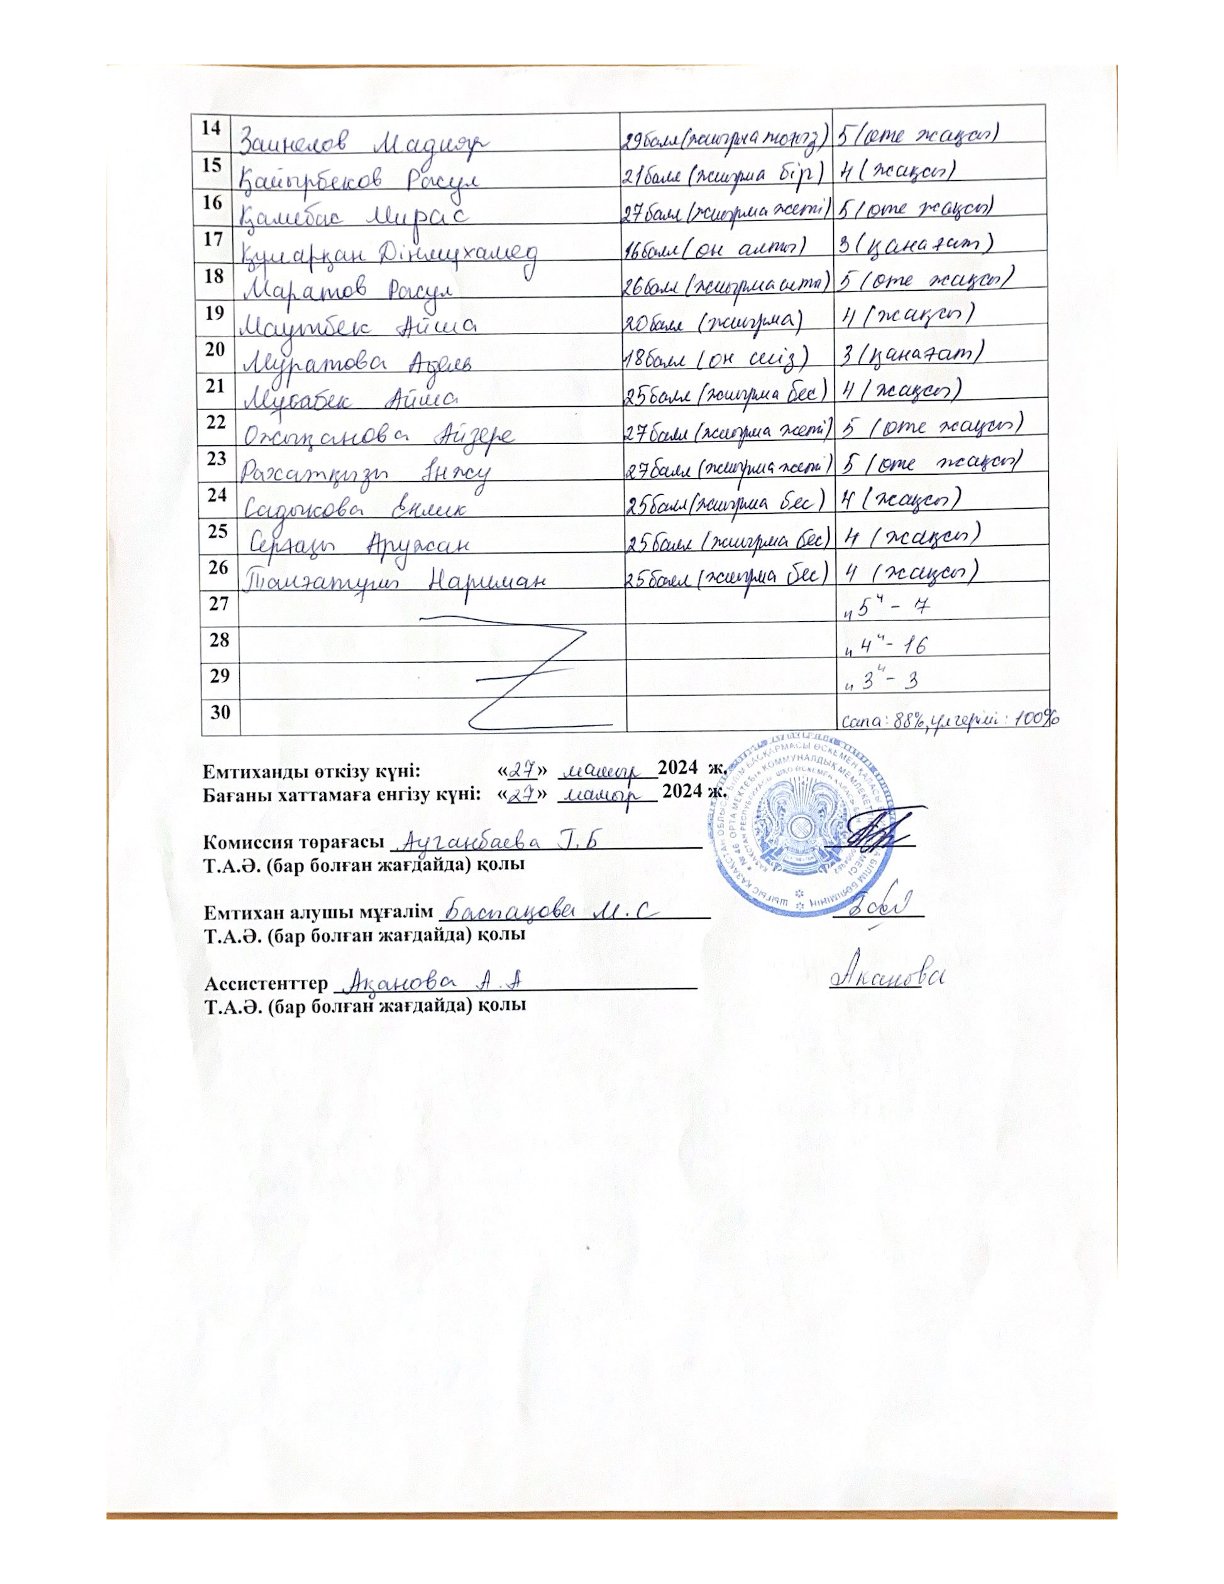 14 Заинелов Мадияр 29балл (жиырма тоғыз) 5 (өте жақсы)
15 Қайырбеков Расул 21балл (жиырма бір) 4 (жақсы)
16 Қамебас Мирас 27балл (жиырма жеті) 5 (өте жақсы)
17 Құмарқан Дінмұхамед 16балл (он алты) 3 (қанағат)
18 Маратов Расул 26балл (жиырма алты) 5 (өте жақсы)
19 Маутбек Айша 20балл (жиырма) 4 (жақсы)
20 Муратова Адель 18балл (он сегіз) 3 (қанағат)
21 Мұбабек Айша 25балл (жиырма бес) 4 (жақсы)
22 Ожықанова Айзере 27балл (жиырма жеті) 5 (өте жақсы)
23 Рахатқызы Інжу 27балл (жиырма жеті) 5 (өте жақсы)
24 Садыкова Еңлик 25балл (жиырма бес) 4 (жақсы)
25 Серғазы Аружан 25балл (жиырма бес) 4 (жақсы)
26 Таңатұлы Нариман 25балл (жиырма бес) 4 (жақсы)
27 „5“ - 7
28 „4“ - 16
29 „3“ - 3
30 сапа: 88%, үлгерімі: 100%
Емтиханды өткізу күні: «27» мамыр 2024 ж.
Бағаны хаттамаға енгізу күні: «27» мамыр 2024 ж.
Комиссия төрағасы Ауганбаева Г.Б
Т.А.Ә. (бар болған жағдайда) қолы
Емтихан алушы мұғалім Баспақова М.С
Т.А.Ә. (бар болған жағдайда) қолы
Ассистенттер Ақанова А.А Аканова
Т.А.Ә. (бар болған жағдайда) қолы